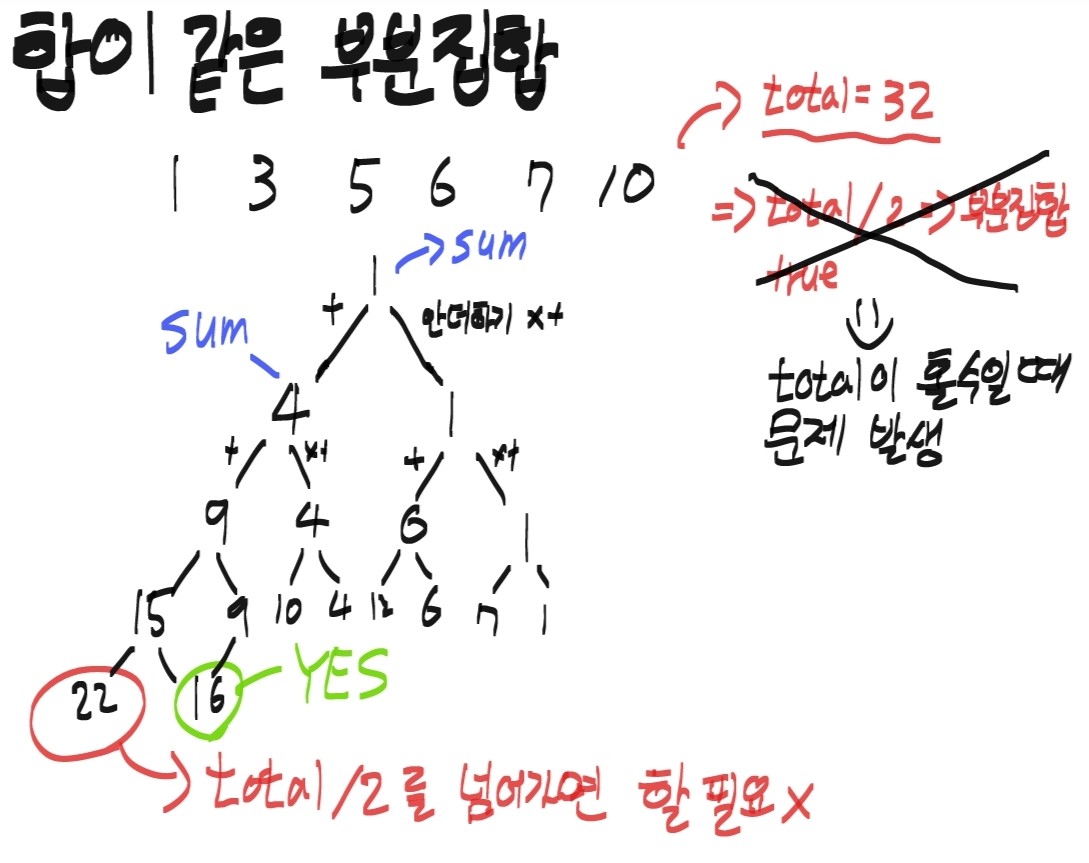 합이 같은 부분집합
total = 32
1 3 5 6 7 10
=> total/2 => 부분집합
true
total이 홀수일 때
문제 발생
1 → sum
+ 안더하기 x+
sum
4 1
+ x+ + x+
9 4 6 1
15 9 10 4 12 6 7 1
22 16 YES
total/2를 넘어가면 할 필요 x